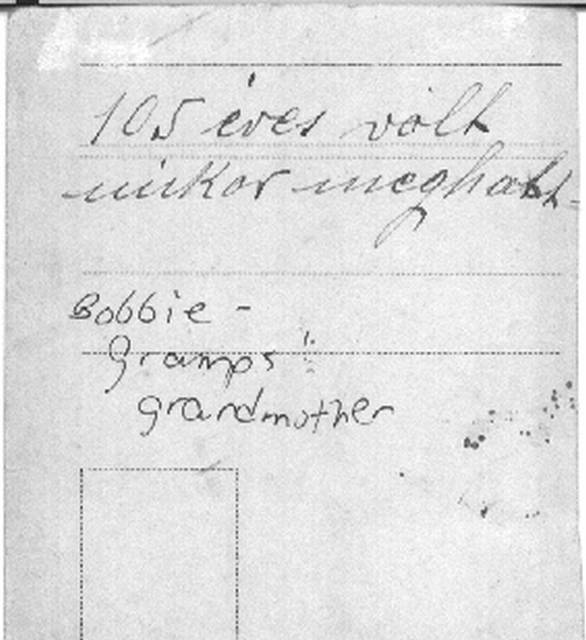 105 éves volt
mikor meghalt
Bobbie -
Gramps'
grandmother